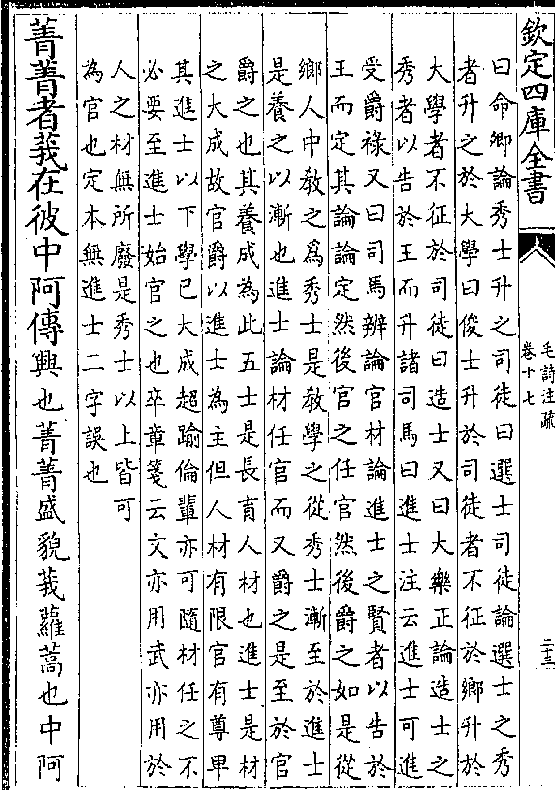 欽定四庫全書
毛詩注疏
卷十七
二十三
曰命鄉論秀士升之司徒曰選士司徒論選士之秀
者升之於大學曰俊士升於司徒者不征於鄉升於
大學者不征於司徒曰造士又曰大樂正論造士之
秀者以告於王而升諸司馬曰進士注云進士可進
受爵祿又曰司馬辨論官材論進士之賢者以告於
王而定其論論定然後官之任官然後爵之如是從
鄉人中教之為秀士是教學之從秀士漸至於進士
是養之以漸也進士論材任官而又爵之是至於官
爵之也其養成為此五士是長育人材也進士是材
之大成故官爵以進士為主但人材有限官有尊卑
其進士以下學已大成超踰倫輩亦可隨材任之不
必要至進士始官之也卒章箋云文亦用武亦用於
人之材無所廢是秀士以上皆可
為官也定本無進士二字誤也
菁菁者莪在彼中阿傳興也菁菁盛貌莪蘿蒿也中阿